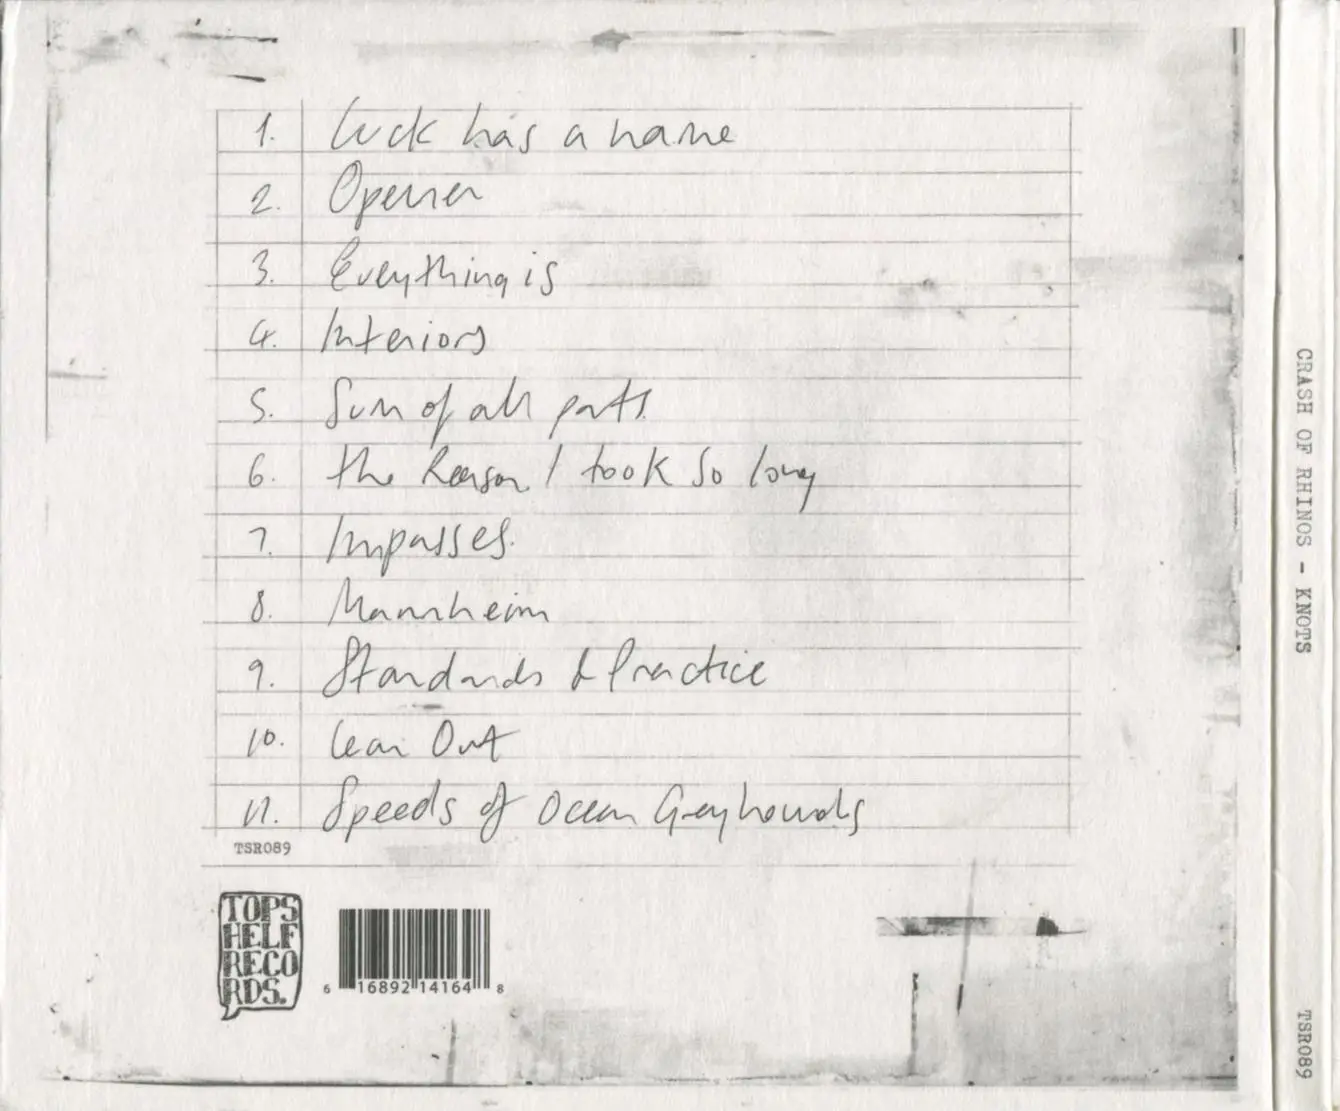 1. Luck has a name
2. Opener
3. Everything is
4. Interiors
5. Sum of all parts.
6. the Reason I took so long
7. Impasses.
8. Mannheim
9. Standards & Practice
10. Lean Out
11. Speeds of Ocean Greyhounds
TSR089
TOPS
HELF
RECO
RDS.
6 16892 14164 8
CRASH OF RHINOS - KNOTS
TSR089